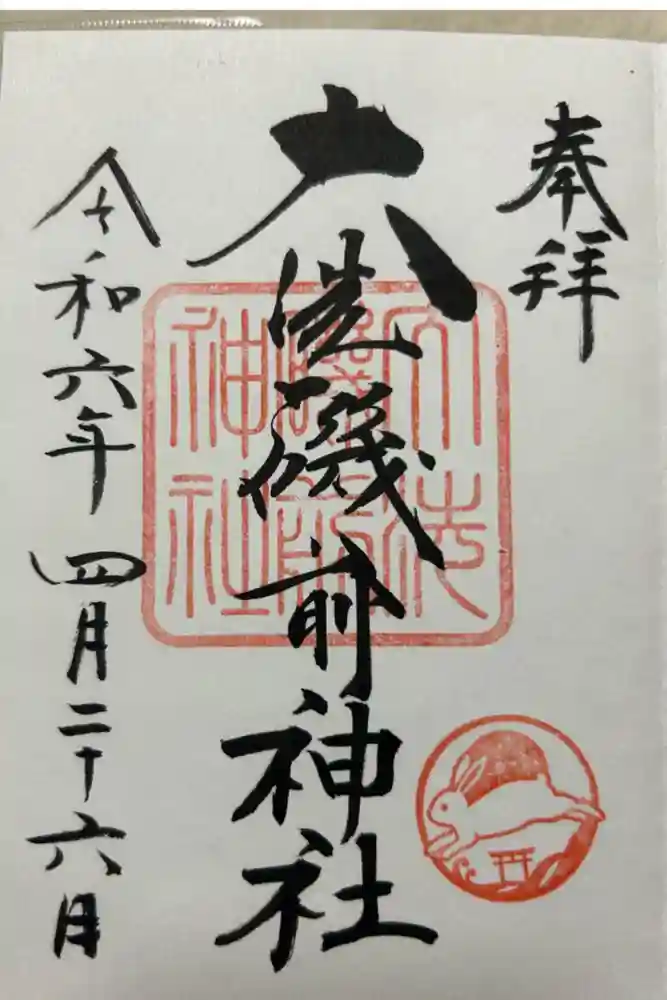 奉拝
大洗磯前神社
大洗
磯前
神社
令和六年 四月二十六日